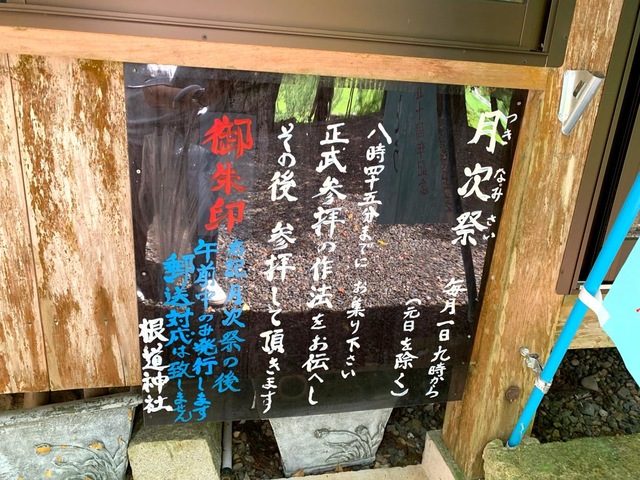 月次祭
つきなみさい
毎月一日九時から
(元日を除く)
八時四十五分までに お集り下さい
正式参拝の作法をお伝へし
その後 参拝して頂きます
御朱印
月次祭の後
午前中のみ発行します
郵送対応は致しません
根道神社